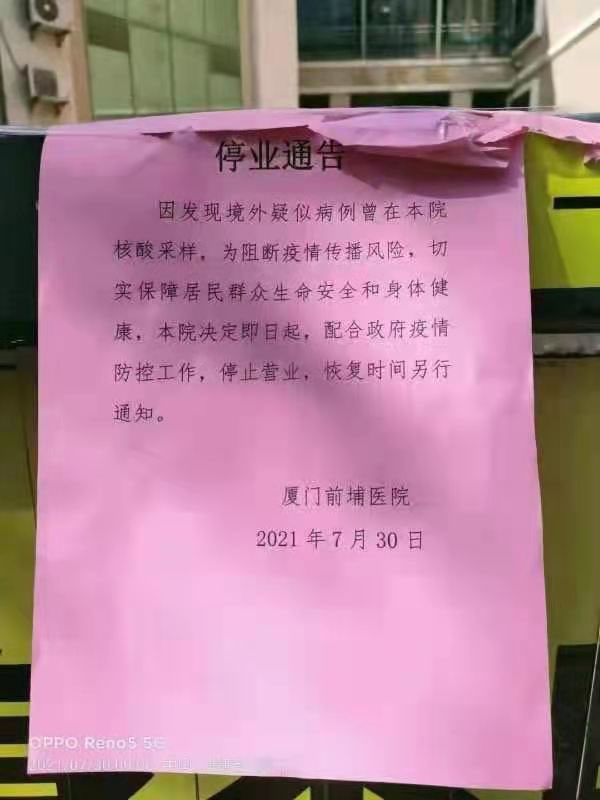 停业通告
因发现境外疑似病例曾在本院
核酸采样，为阻断疫情传播风险，切
实保障居民群众生命安全和身体健
康，本院决定即日起，配合政府疫情
防控工作，停止营业，恢复时间另行
通知。
厦门前埔医院
2021年7月30日
OPPO Reno5 5G
2021/07/30